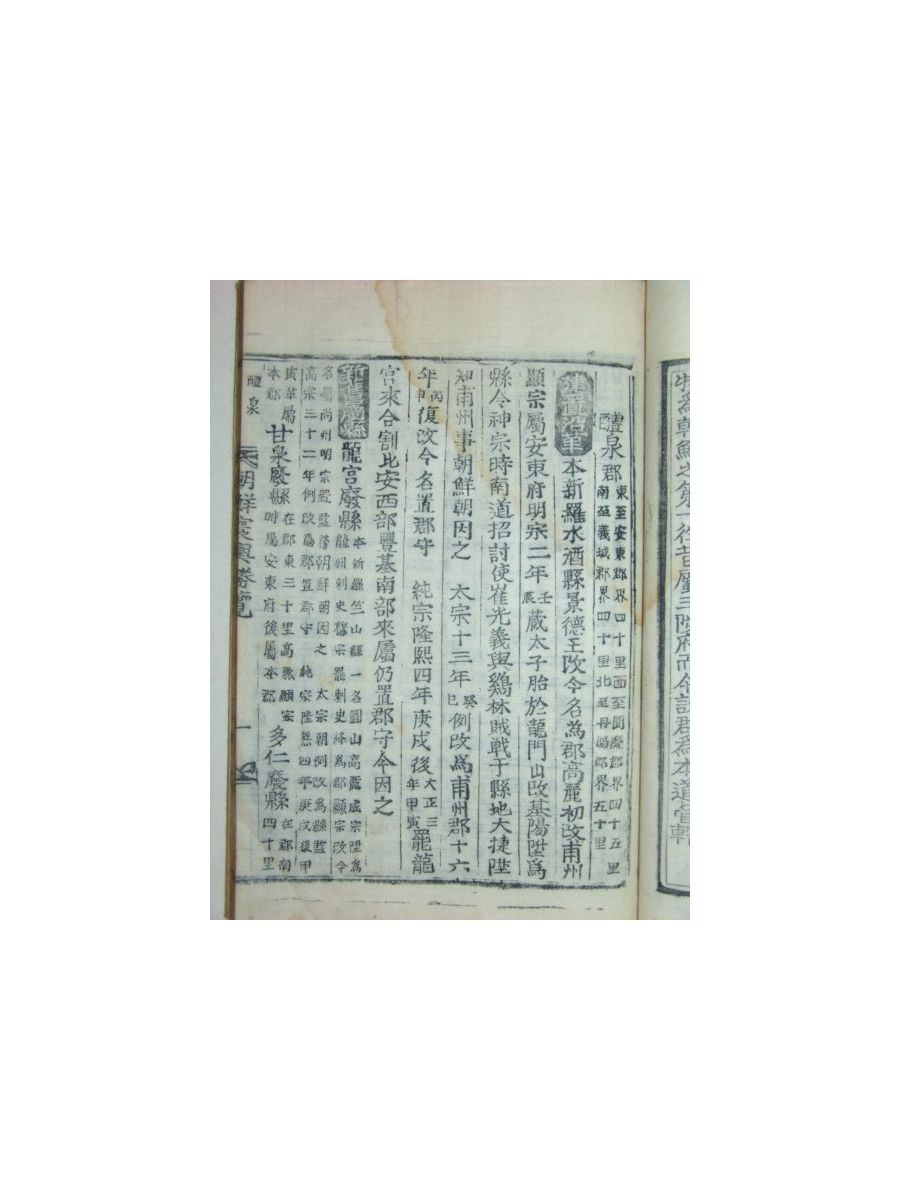 醴泉郡 東至安東郡界四十里西至聞慶郡界四十五里 南至義城郡界四十里北至丹陽郡界五十里
建置沿革 本新羅水酒縣景德王改今名為郡高麗初改甫州
顯宗屬安東府明宗二年壬辰藏太子胎於龍門山改基陽陞為
縣令神宗時南道招討使崔光義與鷄林賊戦于縣地大捷陞
知甫州事朝鮮朝因之 太宗十三年癸巳例改為甫州郡十六
年丙申復改今名置郡守 純宗隆熙四年庚戍後大正三年甲寅罷龍
宮來合割比安西部豐基南部來屬仍置郡守今因之
龍宮廢縣 本新羅竺山縣一名園山高麗成宗陞為龍州刺史穆宗罷刺史降為郡顯宗改今
名屬尚州明宗置監務朝鮮朝因之 太宗朝例改為縣監高宗三十二年例改為郡置郡守 純宗隆熙四年庚戍後甲
寅革屬本郡 甘泉廢縣 在郡東三十里高麗顯宗時屬安東府後屬本郡 多仁廢縣 在郡南四十里
醴泉
朝鮮寰輿勝覽
一